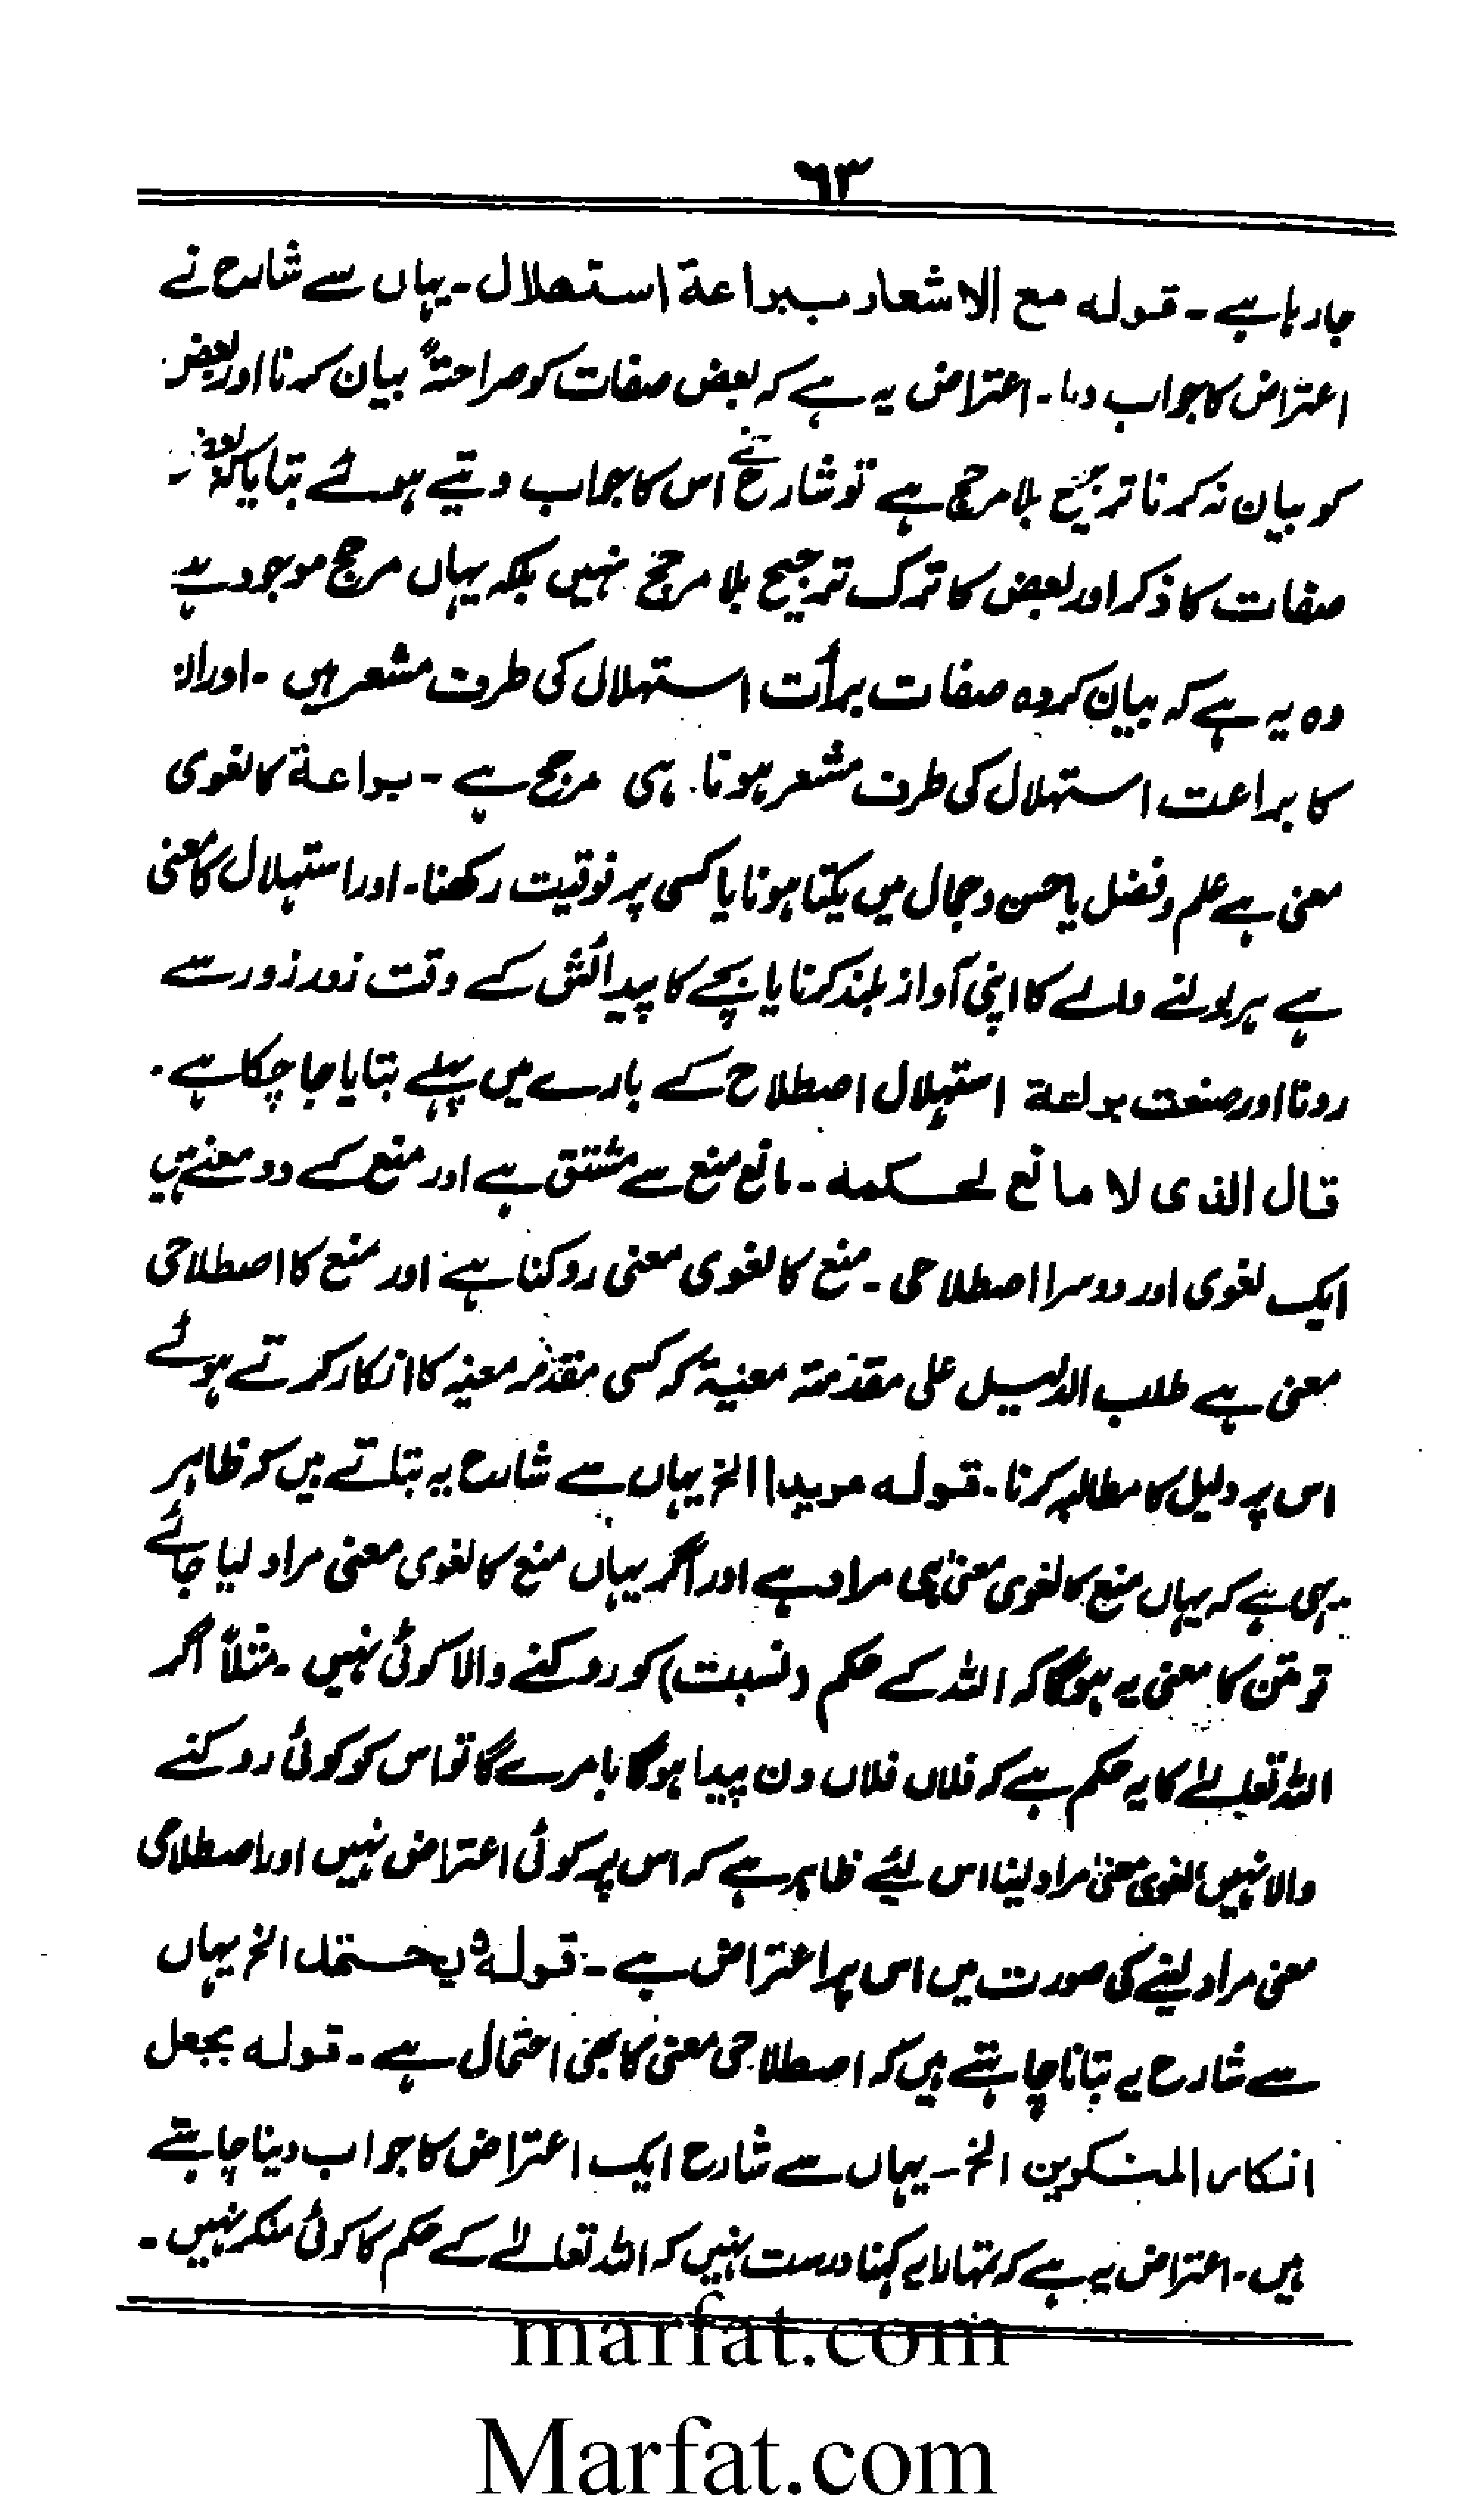 ٦٣
جارہا ہے۔ قولہ مع الاشعار ببراعۃ استھلال۔ یہاں سے شارح نے
اعتراض کا جواب دیا۔ اعتراض یہ ہے کہ بعض صفات کو صراحتہً بیان کرنا اور بعض
کو بیان نہ کرنا ترجیح بلا مرجح ہے تو شارح نے اس کا جواب دیتے ہوئے بتایا کہ بعض
صفات کا ذکر اور بعض کا ترک ترجیح بلا مرجح نہیں بلکہ یہاں مرجح موجود ہے
وہ یہ ہے کہ بیان کردہ صفات برأت استہلال کی طرف مشعر ہیں۔ اور ان
کا براعت استہلال کی طرف مشعر ہونا ہی مرجح ہے۔ براعۃ کا لغوی
معنی ہے علم و فضل یا حسن و جمال میں یکتا ہونا یا کسی پر فوقیت رکھنا۔ اور استہلال کا معنی
ہے ہر بولنے والے کا اپنی آواز بلند کرنا یا بچے کا پیدائش کے وقت زور زور سے
رونا اور صنعت براعۃ استہلال اصطلاح کے بارے میں پہلے بتایا جا چکا ہے۔
قال الذی لا مانع لحکمہ۔ مانع منع سے مشتق ہے اور منع کے دو معنے ہیں
ایک لغوی اور دوسرا اصطلاحی۔ منع کا لغوی معنی روکنا ہے اور منع کا اصطلاحی
معنی ہے طلب الدلیل علی مقدمۃ معنیۃ کہ کسی مقدمہ معینہ کا انکار کرتے ہوئے
اس پر دلیل کا مطالبہ کرنا۔ قولہ مریدا الخ یہاں سے شارح یہ بتلاتے ہیں کہ ظاہر
یہی ہے کہ یہاں منع کا لغوی معنی ہی مراد ہے اور اگر یہاں منع کا لغوی معنی مراد لیا جائے
تو متن کا معنی یہ ہوگا کہ اللہ کے حکم (نسبت) کو روکنے والا کوئی نہیں۔ مثلاً اگر
اللہ تعالےٰ کا یہ حکم ہے کہ فلاں فلاں دن پیدا ہوگا یا مرے گا تو اس کو کوئی روکنے
والا نہیں لغوی معنی مراد لینا اس لیئے ظاہر ہے کہ اس پر کوئی اعتراض نہیں اور اصطلاحی
معنی مراد لینے کی صورت میں اس پر اعتراض ہے۔ قولہ ویحتمل الخ یہاں
سے شارح یہ بتانا چاہتے ہیں کہ اصطلاحی معنی کا بھی احتمال ہے۔ قولہ بجعل
انکار المنکرین الخ۔ یہاں سے شارح ایک اعتراض کا جواب دینا چاہتے
ہیں۔ اعتراض یہ ہے کہ تمہارا یہ کہنا درست نہیں کہ اللہ تعالےٰ کے حکم کا کوئی منکر نہیں۔
marfat.com
Marfat.com